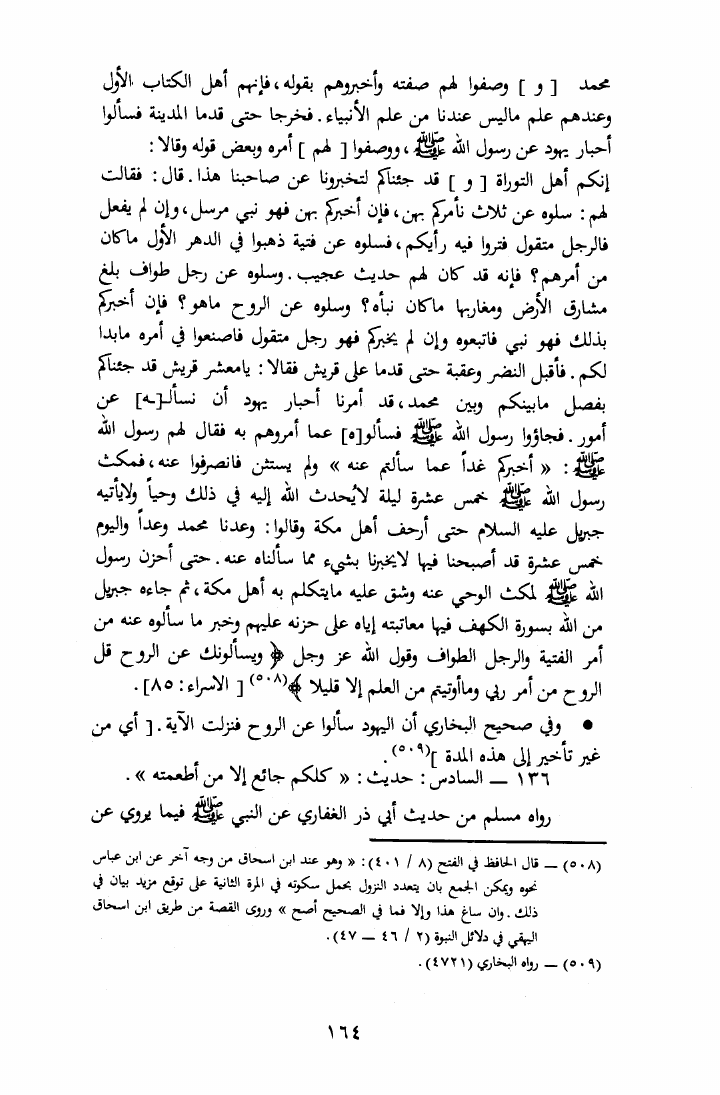 محمد [ و ] وصفوا لهم صفته وأخبروهم بقوله ، فإنهم أهل الكتاب الأول
وعندهم علم ماليس عندنا من علم الأنبياء . فخرجا حتى قدما المدينة فسألوا
أحبار يهود عن رسول الله ﷺ ، ووصفوا [ لهم ] أمره وبعض قوله وقالا :
إنكم أهل التوراة [ و ] قد جئناكم لتخبرونا عن صاحبنا هذا . قال : فقالت
لهم : سلوه عن ثلاث نأمركم بهن ، فإن أخبركم بهن فهو نبي مرسل ، وإن لم يفعل
فالرجل متقول فتروا فيه رأيكم ، فسلوه عن فتية ذهبوا في الدهر الأول ماكان
من أمرهم ؟ فإنه قد كان لهم حديث عجيب . وسلوه عن رجل طواف بلغ
مشارق الأرض ومغاربها ماكان نبأه ؟ وسلوه عن الروح ماهو ؟ فإن أخبركم
بذلك فهو نبي فاتبعوه وإن لم يخبركم فهو رجل متقول فاصنعوا في أمره مابدا
لكم . فأقبل النضر وعقبة حتى قدما على قريش فقالا : يامعشر قريش قد جئناكم
بفصل مابينكم وبين محمد ، قد أمرنا أحبار يهود أن نسألـ[ـه] عن
أمور . فجاؤوا رسول الله ﷺ فسألو[ه] عما أمروهم به فقال لهم رسول الله
ﷺ : « أخبركم غداً عما سألتم عنه » ولم يستثن فانصرفوا عنه ، فمكث
رسول الله ﷺ خمس عشرة ليلة لايُحدث الله إليه في ذلك وحياً ولايأتيه
جبريل عليه السلام حتى أرحف أهل مكة وقالوا : وعدنا محمد وعداً واليوم
خمس عشرة قد أصبحنا فيها لايخبرنا بشيء مما سألناه عنه . حتى أحزن رسول
الله ﷺ لمكث الوحي عنه وشق عليه مايتكلم به أهل مكة ، ثم جاءه جبريل
من الله بسورة الكهف فيها معاتبته إياه على حزنه عليهم وخبر ما سألوه عنه من
أمر الفتية والرجل الطواف وقول الله عز وجل ﴿ ويسألونك عن الروح قل
الروح من أمر ربي وماأوتيتم من العلم إلا قليلا ﴾(٥٠٨) [ الاسراء : ٨٥] .
• وفي صحيح البخاري أن اليهود سألوا عن الروح فنزلت الآية . [ أي من
غير تأخير إلى هذه المدة ](٥٠٩) .
١٣٦ — السادس : حديث : « كلكم جائع إلا من أطعمته » .
رواه مسلم من حديث أبي ذر الغفاري عن النبي ﷺ فيما يروي عن
(٥٠٨) — قال الحافظ في الفتح (٨ / ٤٠١) : « وهو عند ابن اسحاق من وجه آخر عن ابن عباس
نحوه ويمكن الجمع بان يتعدد النزول بحمل سكوته في المرة الثانية على توقع مزيد بيان في
ذلك . وان ساغ هذا وإلا فما في الصحيح أصح » وروى القصة من طريق ابن اسحاق
البيهقي في دلائل النبوة (٢ / ٤٦ — ٤٧) .
(٥٠٩) — رواه البخاري (٤٧٢١) .
١٦٤